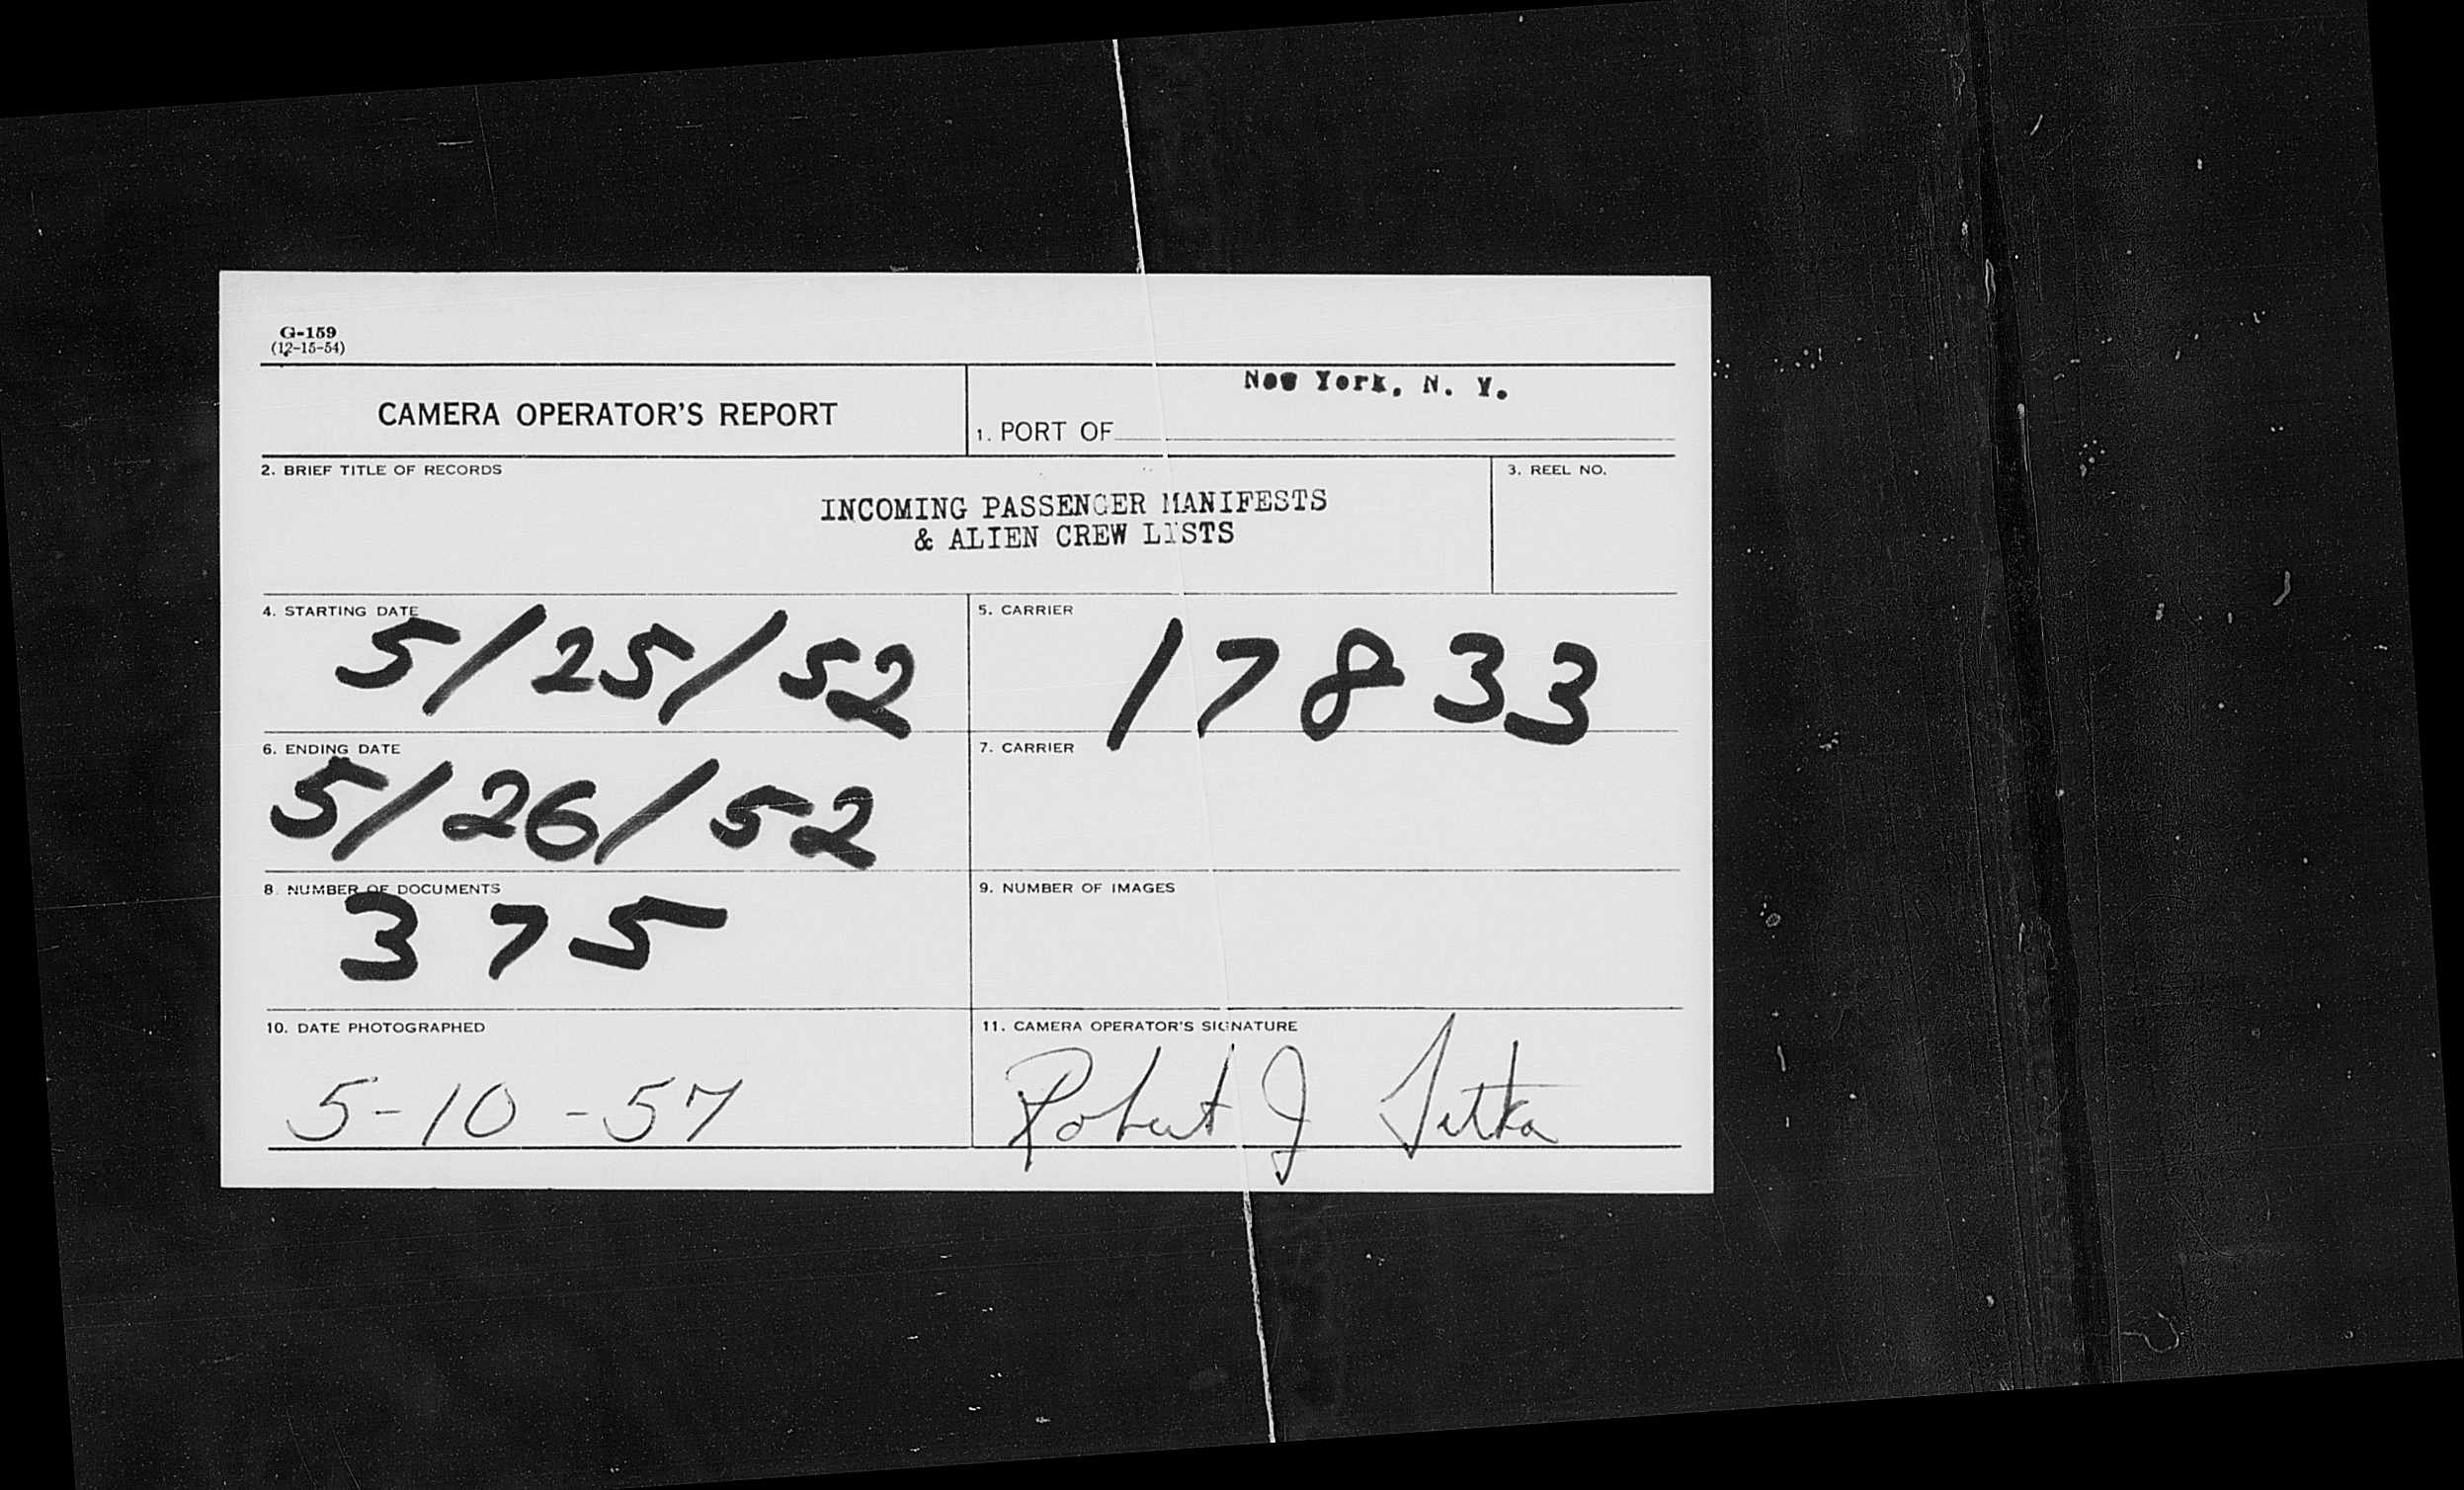 G-159
(12-15-54)
CAMERA OPERATOR'S REPORT
New York, N. Y.
1. PORT OF
2. BRIEF TITLE OF RECORDS
INCOMING PASSENGER MANIFESTS
& ALIEN CREW LISTS
3. REEL NO.
4. STARTING DATE
5/25/52
5. CARRIER
17833
6. ENDING DATE
5/26/52
7. CARRIER
8. NUMBER OF DOCUMENTS
375
9. NUMBER OF IMAGES
10. DATE PHOTOGRAPHED
5-10-57
11. CAMERA OPERATOR'S SIGNATURE
Robert J